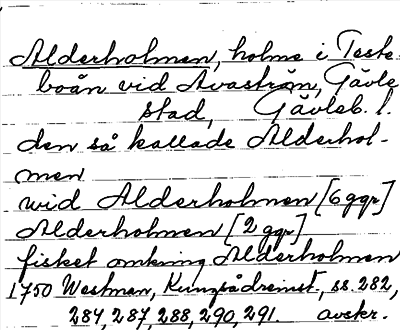 Alderholmen, holme i Teste-
boån vid Avaström, Gävle
stad, Gävleb. l.
den så kallade Alderhol-
men
wid Alderholmen [6 ggr]
Alderholmen [2 ggr]
fisket omkring Alderholmen
1750 Westman, Kungsådreinst., ss. 282,
284, 287, 288, 290, 291. avskr.